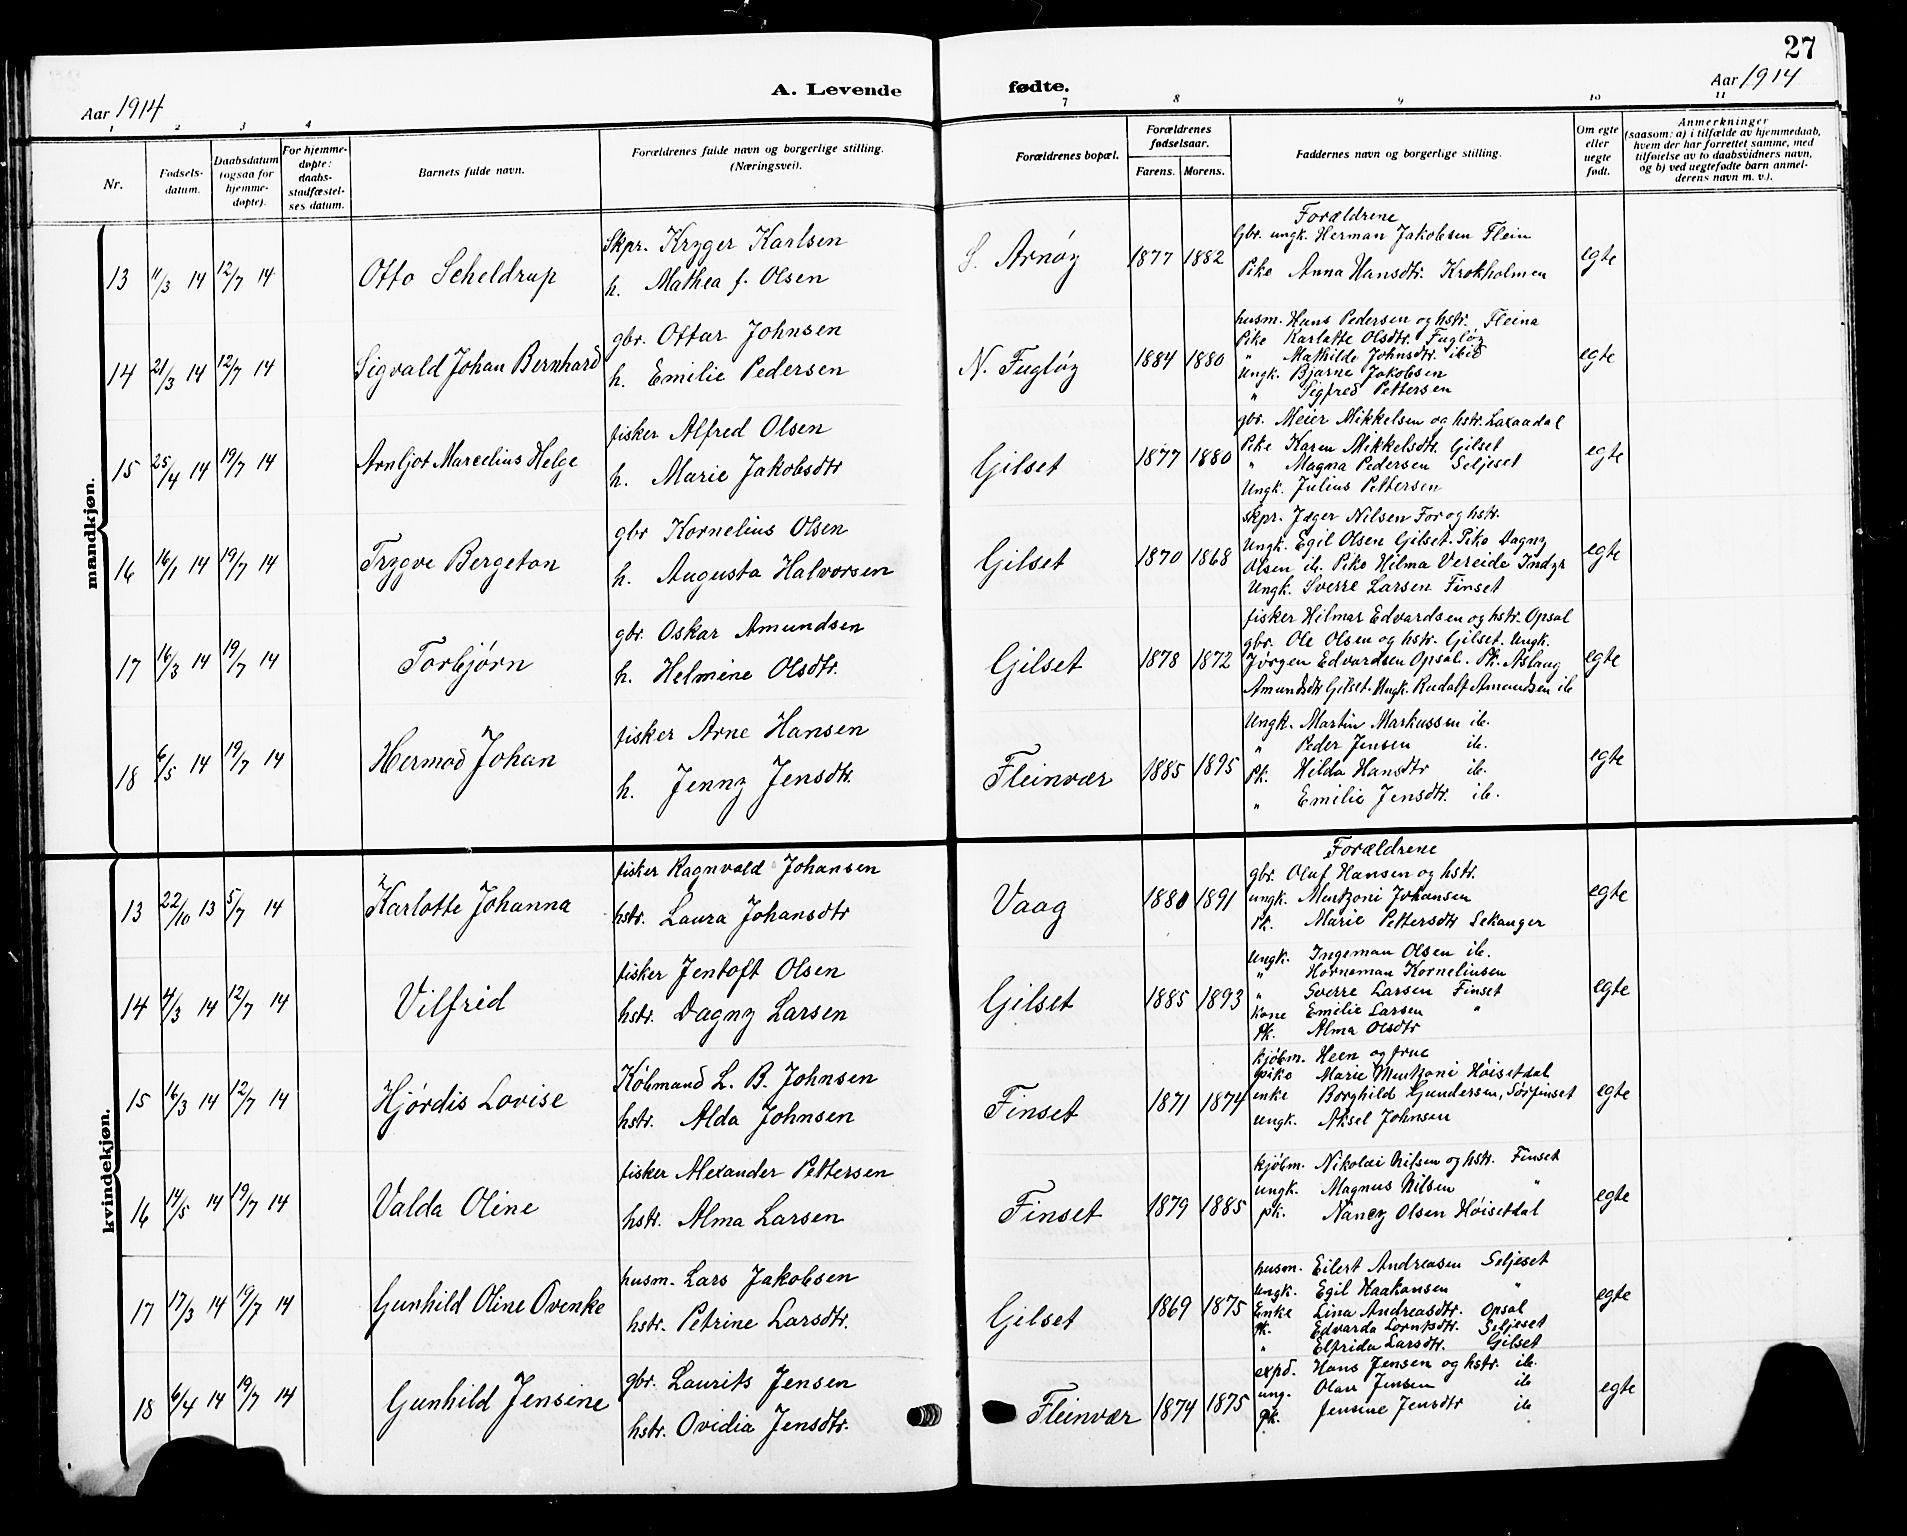 27
Aar 1914
A. Levende fødte.
Aar 1914
1 2 3 4 7 8 9 10 11
Nr.
Fødsels-datum.
Daabsdatum (ogsaa for hjemme-døpte).
For hjemme-døpte: daabs-stadfæstel-ses datum.
Barnets fulde navn.
Forældrenes fulde navn og borgerlige stilling. (Næringsvei).
Forældrenes bopæl.
Forældrenes fødselsaar.
Farens. Morens.
Faddernes navn og borgerlige stilling.
Om egte eller uegte født.
Anmerkninger (saasom: a) i tilfælde av hjemmedaab, hvem der har forrettet samme, med tilføielse av to daabsvidners navn, og b) ved uegtefødte barn anmel-derens navn m. v.).
mandkjøn.
13 11/3 14 12/7 14 Otto Scheldrup
Skpr. Kryger Karlsen
h. Mathea f. Olsen
S. Arnøy 1877 1882
Forældrene
Gbr. ungk. Herman Jakobsen Flein
Pike Anna Hansdtr. Krokholmen
egte
14 21/3 14 12/7 14 Sigvald Johan Bernhard
gbr. Ottar Johnsen
h. Emilie Pedersen
N. Fugløy 1884 1880
husm. Hans Pedersen og hstr. Fleina
Pike Karlotte Olsdtr. Fugløy
" Mathilde Johnsdtr. ibid
Ungk. Bjarne Jakobsen
" Sigfred Pettersen
egte
15 25/4 14 19/7 14 Arnljot Marcelius Helge
fisker Alfred Olsen
h. Marie Jakobsdtr
Gilset 1877 1880
gbr. Meier Mikkelsen og hstr. Laxaadal
Pike Karen Mikkelsdtr. Gilset
" Magna Pedersen Seljeset
Ungk. Julius Pettersen
egte
16 16/1 14 19/7 14 Trygve Bergeton
gbr Kornelius Olsen
h. Augusta Halvorsen
Gilset 1870 1868
skpr. Jæger Nilsen For og hstr.
Ungk. Egil Olsen Gilset. Pike Dagny
Olsen ib. Pike Hilma Vereide Indyr
Ungk. Sverre Larsen Finset
egte
17 16/3 14 19/7 14 Torbjørn
gbr. Oskar Amundsen
h. Helmine Olsdtr.
Gilset 1878 1872
fisker Hilmar Edvardsen og hstr. Opsal
gbr. Ole Olsen og hstr. Gilset. Ungk.
Jørgen Edvardsen Opsal. Pk. Aslaug
Amundsdtr Gilset. Ungk. Rudolf Amundsen ib
egte
18 6/5 14 19/7 14 Hermod Johan
fisker Arne Hansen
h. Jenny Jensdtr.
Fleinvær 1885 1895
Ungk. Martin Markussen ib.
" Peder Jensen ib.
Pk. Hilda Hansdtr ib.
" Emilie Jensdtr. ib.
egte
kvindekjøn.
13 22/10 13 5/7 14 Karlotte Johanna
fisker Ragnvald Johansen
hstr. Laura Johansdtr
Vaag 1880 1891
Forældrene
gbr. Oluf Hansen og hstr.
ungk. Mentzoni Johansen
Pk. Marie Pettersdtr Sekanger
egte
14 4/3 14 12/7 14 Vilfrid
fisker Jentoft Olsen
hstr. Dagny Larsen
Gilset 1885 1893
ungk. Ingeman Olsen ib.
" Horneman Korneliusen
" Sverre Larsen Finset
Kone Emelie Larsen "
Pk. Alma Olsdtr
egte
15 16/3 14 12/7 14 Hjørdis Lovise
Købmand L. B. Johnsen
hstr. Alda Johnsen
Finset 1871 1874
kjøbm. Heen og frue
pike Marie Mentzoni Høisetdal
enke Borghild Gundersen, Sørfinset
ungk. Aksel Johnsen
egte
16 14/5 14 19/7 14 Valda Oline
fisker Alexander Pettersen
hstr. Alma Larsen
Finset 1879 1885
kjøbm. Nikolai Nilsen og hstr. Finset
ungk. Magnus Nilsen "
pk. Nancy Olsen Høisetdal
egte
17 17/3 14 19/7 14 Gunhild Oline Ovenke
husm. Lars Jakobsen
hstr. Petrine Larsdtr.
Gilset 1869 1875
husm. Eilert Andreasen Seljeset
ungk. Egil Haakonsen "
Enke Lina Andreasdtr. Opsal
Pk. Edvarda Lorntsdtr. Seljeset
" Elfrida Larsdtr. Gilset
egte
18 6/4 14 19/7 14 Gunhild Jensine
gbr. Laurits Jensen
hstr. Ovidia Jensdtr.
Fleinvær 1874 1875
expd. Hans Jensen og hstr. ib.
ung. Olav Jensen ib
pk. Jensine Jensdtr ib
egte